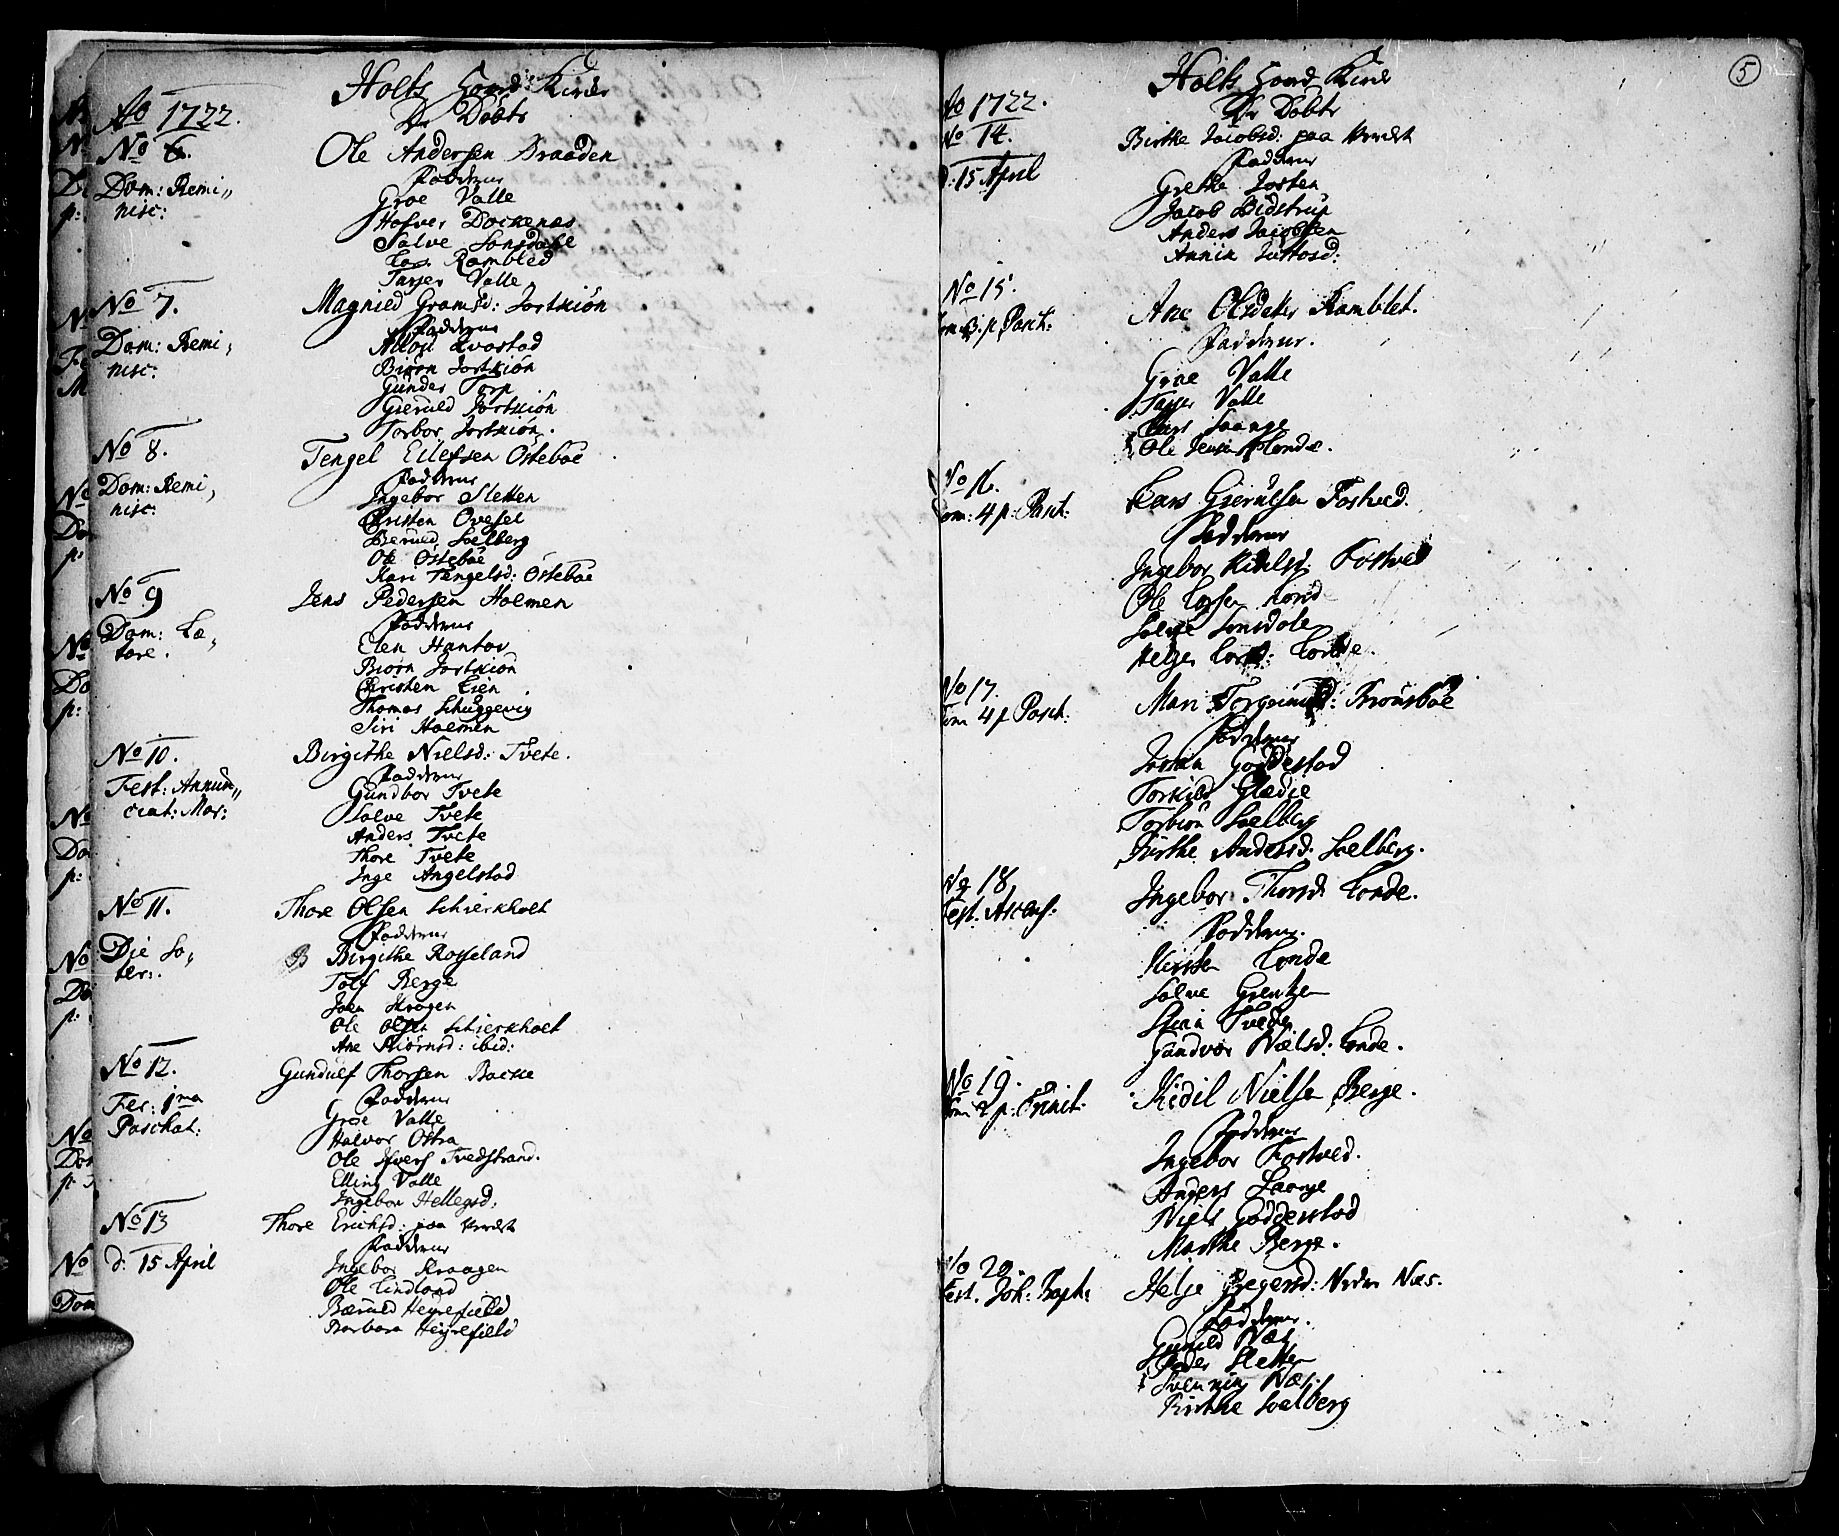 Holts Hoved Kircke
De Döbte
Ao 1722.
No 6.
Dom: Remi„
nisc:
Ole Andersen Braaden
Fadderne
Groe Valle
Halvor Dockenæs
Salve Songdale
Lars Rambled
Tarjer Valle
No 7.
Dom: Remi,
nisc:
Magnild Gramsd: Jortkiön
Fadderne
Aslou Qvastad
Biörn Jortkiön
Gunder Torp
Gieruld Jortkiön
Torbor Jortkiön.
No 8.
Dom: Remi,
nisc:
Tengel Eilefsen Östeböe
Fadderne
Ingebor Sletten
Christen Ovesel
Beruld Soelberg
Ole Östeböe
Kari Tengelsd: Östeböe
No 9
Dom: Læ„
tare.
Jens Pedersen Holmen
Fadderne
Elen Hantov
Biörn Jortkiön
Christen Eien
Thomas Schuggevig
Siri Holmen
No 10.
Fest: Annun„
ciat: Mar:
Birgithe Nielsd: Tvete.
Fadderne
Gundbor Tvete
Salve Tvete
Anders Tvete
Thore Tvete
Inge Angelstad
No 11.
Die So„
ter:.
Thore Olsen Schierkholt
Fadderne
B Birgithe Rosseland
Tolf Berge
Joen Krogen
Ole Olsen Schierkholt
Ane Biörnsd: ibid:
No 12.
Fer: 1ma
Paschat:
Gundulf Thorsen Backe
Fadderne
Groe Valle
Halvor Ostra
Ole Ifvers Tvedstrand.
Elling Valle
Ingebor Hellegsd,
No 13
d: 15 April
Thore Erichsd: paa Verket
Fadderne
Ingebor Kraagen
Ole Lindland
Bæruld Heyrefield
Barbara Heyrefield
5
Holts Hoved Kircke
De Döbte
Ao 1722.
No 14.
d: 15 April
Birthe Jacobsd: paa Verket
Fadderne
Grethe Josten
Jacob Bidstrup
Anders Jacobsen
Annik Juttosd:
No 15.
Dom 3. p. Pasch:
Ane Olsdater Ramblet.
Fadderne.
Groe Valle
Tarjer Valle
Lars Saange
Ole Jensen Londe.
No 16.
Dom: 4 p: Pasch:
Lars Gierulsen Fostved.
Fadderne
Ingebor Kidelsd: Fostved
Ole Larsen Lond
Salve Songdale
Helje Larsd: Londe.
No 17.
Dom 4 p Pasch:
Mari Torgeimsd: Brönsböe
Fadderne
Goddestad
Torkild Glædie
Torbiön Soelberg
Birthe Andersd: Soelberg.
No 18
Fest: Ascens:
Ingebor Thorsd: Londe.
Fadderne.
Kirsten Londe
Salve Grentzen
Tvede
Gundvor Nielsd: Londe.
No 19.
Dom 2 p: Trinit:
Kidil Nielsen Berge.
Fadderne
Ingebor Fostved.
Anders Saange
Niels Godderstad
Marthe Berge.
No 20.
Fest. Joh: Bapt:
Helje Bregersd: Neder Næs.
Fadderne.
Gunild Næs
Peder Sletten
Svenning Næs.
Kirthe Soelberg